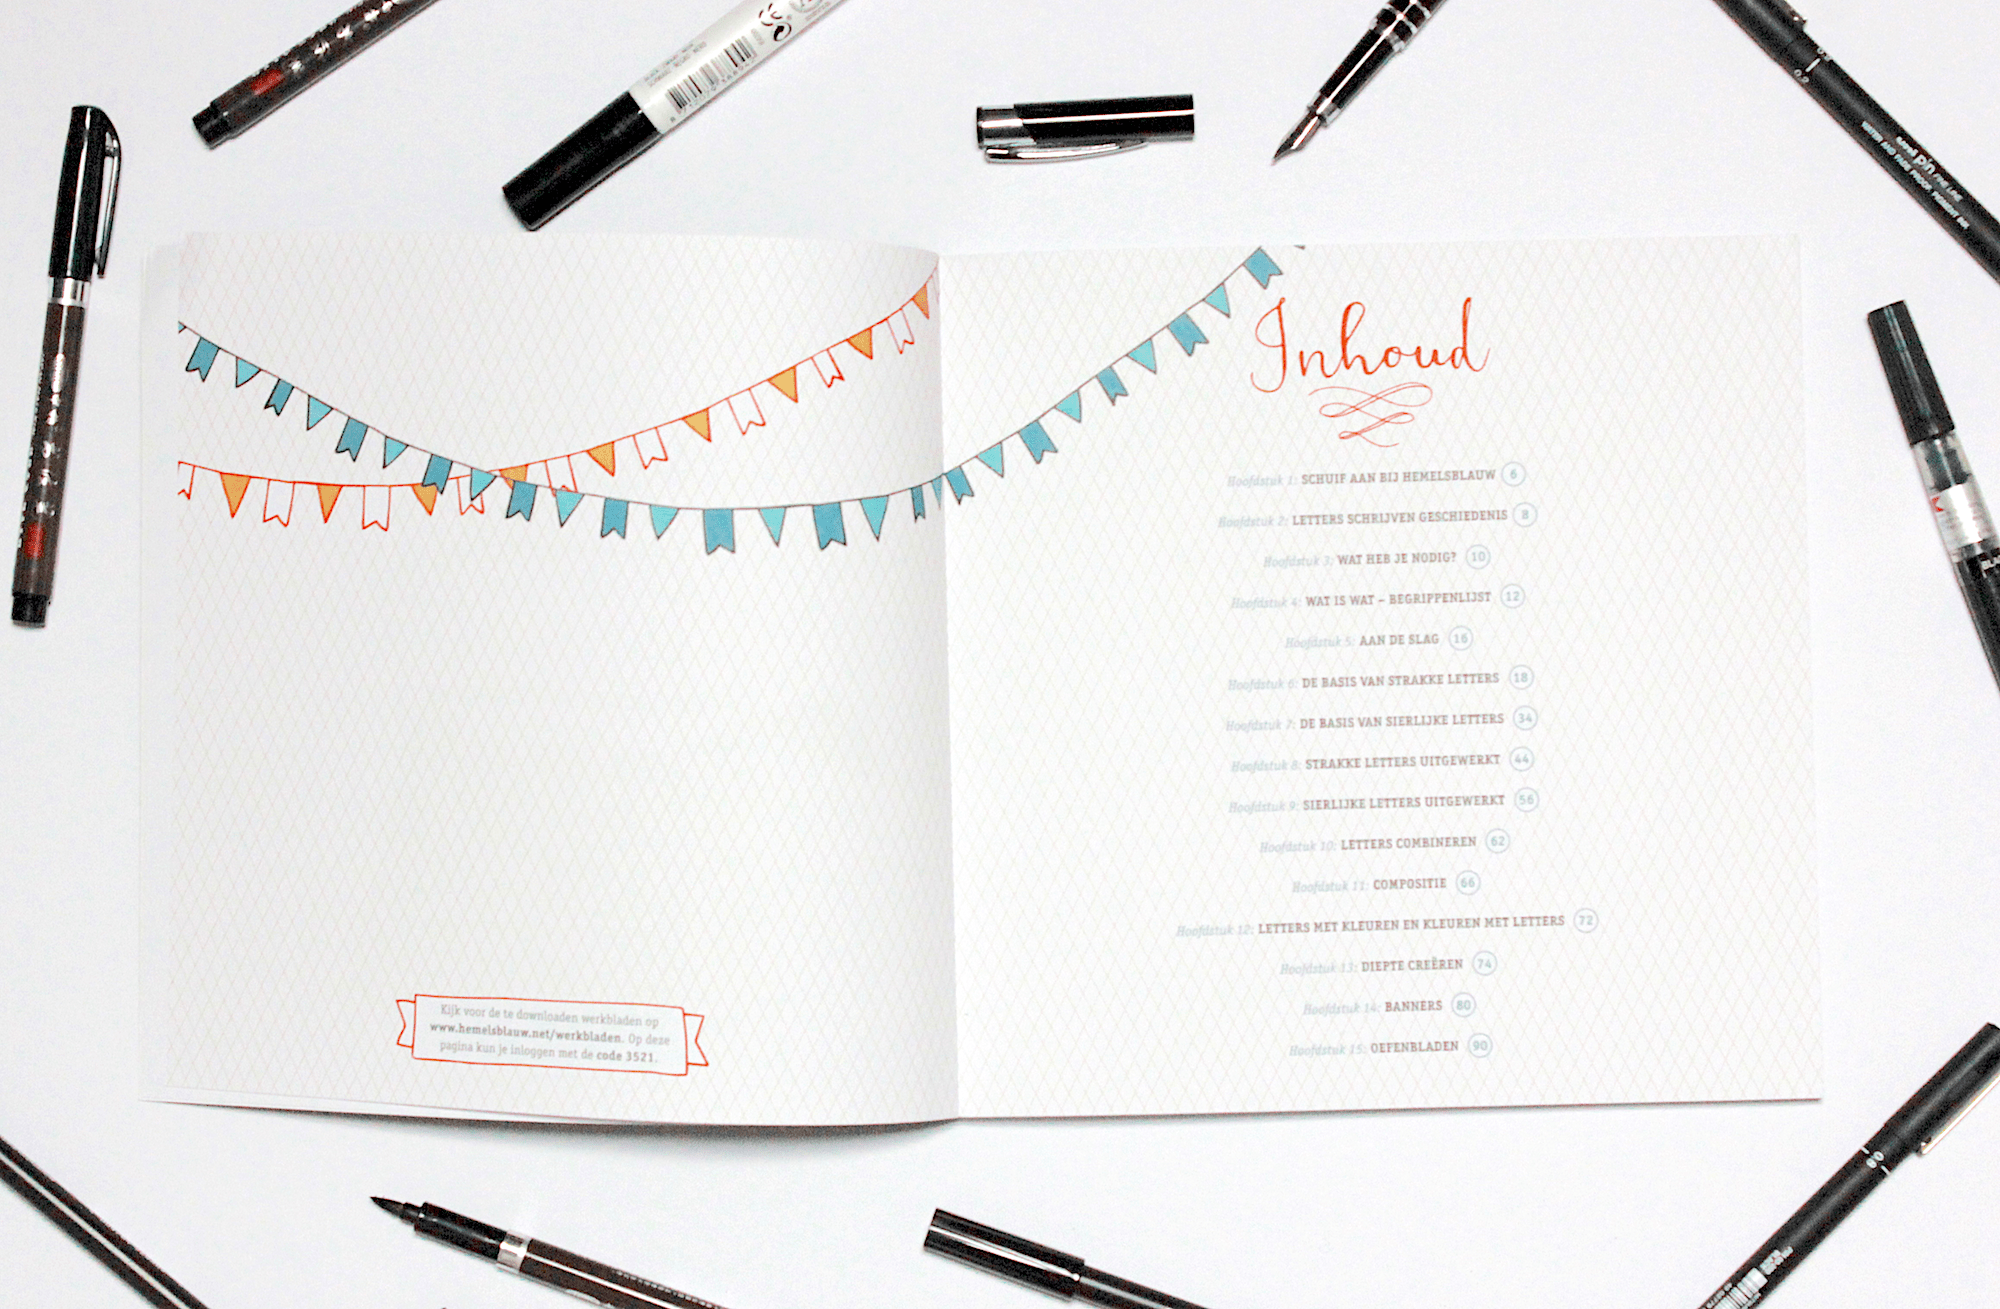 uni pin FINE LINE
WATER AND FADE PROOF PIGMENT INK
0.2
Inhoud
Hoofdstuk 1: SCHUIF AAN BIJ HEMELSBLAUW 6
Hoofdstuk 2: LETTERS SCHRIJVEN GESCHIEDENIS 8
Hoofdstuk 3: WAT HEB JE NODIG? 10
Hoofdstuk 4: WAT IS WAT – BEGRIPPENLIJST 12
Hoofdstuk 5: AAN DE SLAG 16
Hoofdstuk 6: DE BASIS VAN STRAKKE LETTERS 18
Hoofdstuk 7: DE BASIS VAN SIERLIJKE LETTERS 34
Hoofdstuk 8: STRAKKE LETTERS UITGEWERKT 44
Hoofdstuk 9: SIERLIJKE LETTERS UITGEWERKT 56
Hoofdstuk 10: LETTERS COMBINEREN 62
Hoofdstuk 11: COMPOSITIE 66
Hoofdstuk 12: LETTERS MET KLEUREN EN KLEUREN MET LETTERS 72
Hoofdstuk 13: DIEPTE CREËREN 74
Hoofdstuk 14: BANNERS 80
Hoofdstuk 15: OEFENBLADEN 90
Kijk voor de te downloaden werkbladen op
www.hemelsblauw.net/werkbladen. Op deze
pagina kun je inloggen met de code 3521.